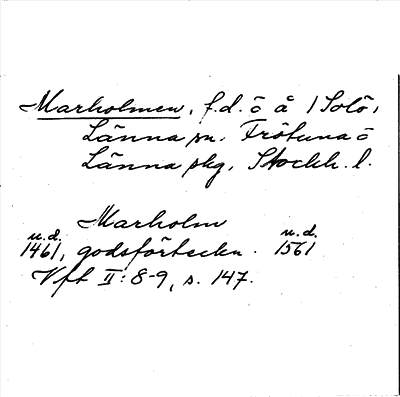 Marholmen, f.d. ö å 1 Solö,
Länna sn. Frötuna o
Länna skg, Stockh. l.
Marholm
u.d. u.d.
1461, godsförteckn. 1561
Vft II: 8-9, s. 147.